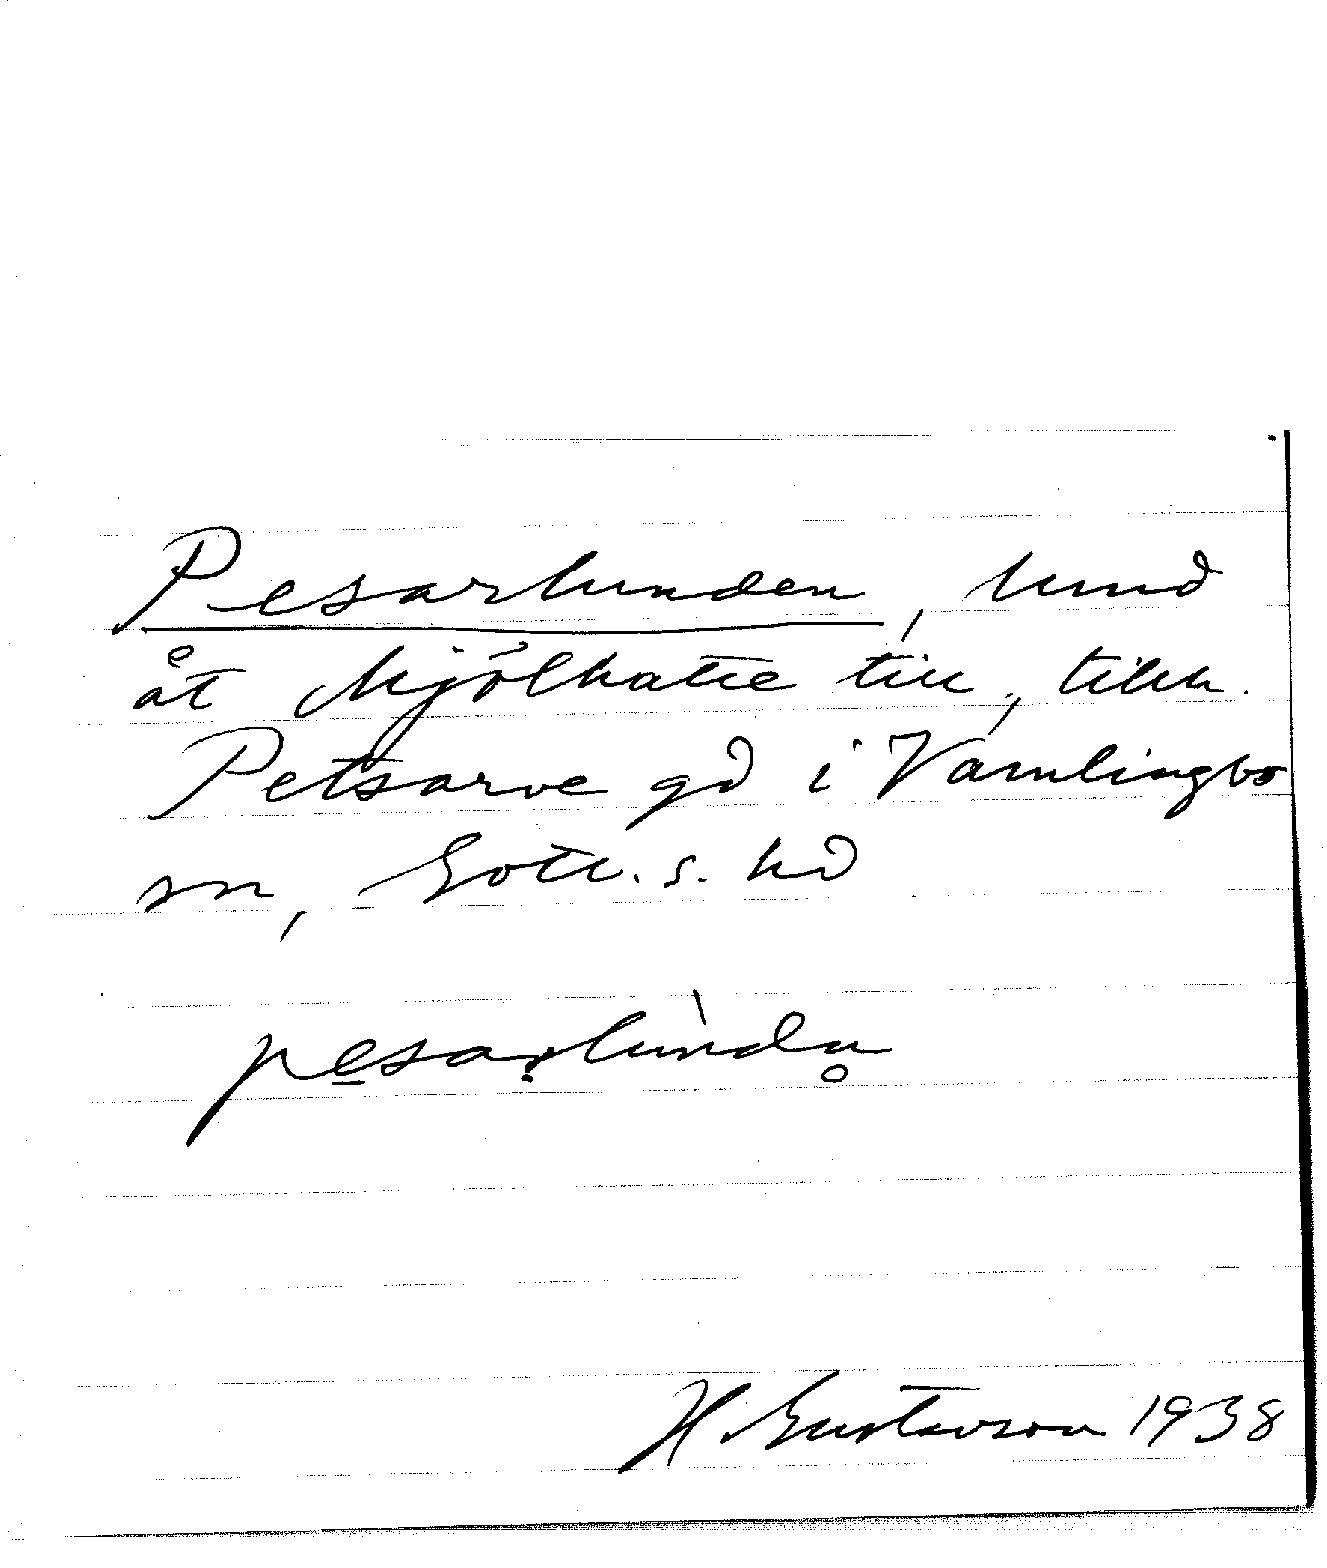 Pesarlunden, lund
åt Mjölhatte till, tillh.
Petsarve gd i Vamlingbo
sn, Gotl. s. hd
pesarlùndn̥
H. Gustavson 1938